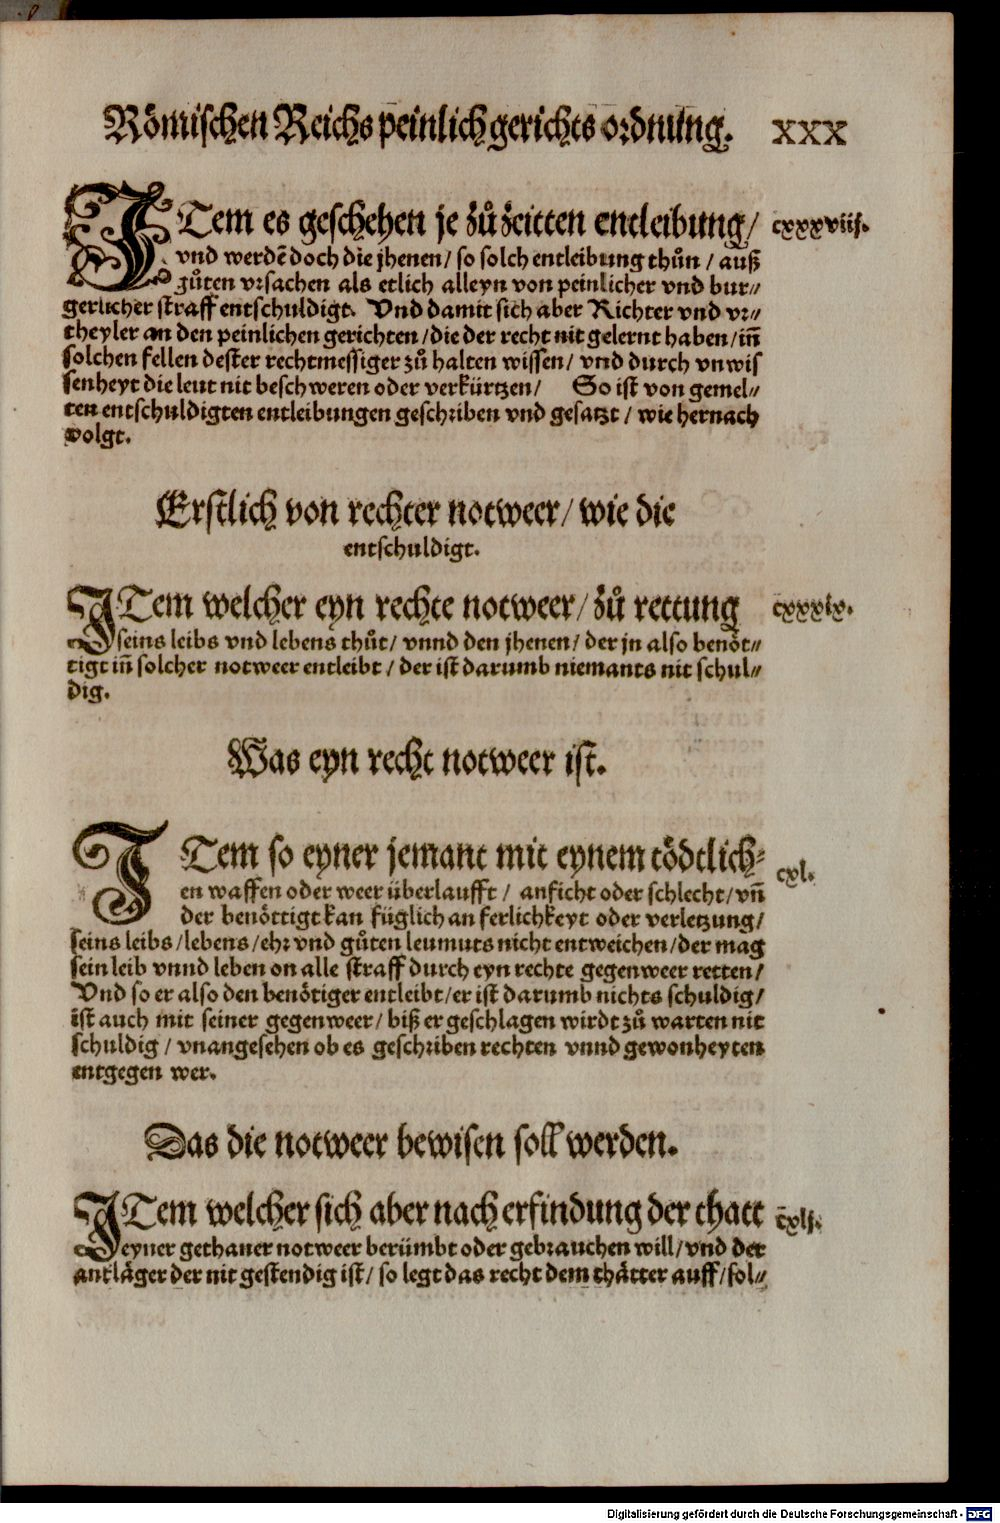 Römischen Reichs peinlich gerichts ordnung. XXX
ITem es geschehen je zů zeitten entleibung/ cxxxviij.
vnd werdē doch die jhenen/ so solch entleibung thůn / auß
gůten vrsachen als etlich alleyn von peinlicher vnd bur⸗
gerlicher straff entschuldigt. Vnd damit sich aber Richter vnd vr⸗
theyler an den peinlichen gerichten/ die der recht nit gelernt haben/ iñ
solchen fellen dester rechtmessiger zů halten wissen/ vnd durch vnwis
senheyt die leut nit beschweren oder verkürtzen/ So ist von gemel⸗
ten entschuldigten entleibungen geschriben vnd gesatzt / wie hernach
volgt.
Erstlich von rechter notweer/ wie die
entschuldigt.
ITem welcher eyn rechte notweer/ zů rettung cxxxix.
seins leibs vnd lebens thůt/ vnnd den jhenen/ der jn also benöt⸗
tigt iñ solcher notweer entleibt / der ist darumb niemants nit schul⸗
dig.
Was eyn recht notweer ist.
ITem so eyner jemant mit eynem tödtlich⸗ cxl.
en waffen oder weer überlaufft / anficht oder schlecht/ vñ
der benöttigt kan füglich an ferlichkeyt oder verletzung/
seins leibs /lebens /ehr vnd gůten leumuts nicht entweichen/ der mag
sein leib vnnd leben on alle straff durch eyn rechte gegenweer retten/
Vnd so er also den benötiger entleibt/ er ist darumb nichts schuldig/
ist auch mit seiner gegenweer/ biß er geschlagen wirdt zů warten nit
schuldig / vnangesehen ob es geschriben rechten vnnd gewonheyten
entgegen wer.
Das die notweer bewisen soll werden.
ITem welcher sich aber nach erfindung der thatt cxlj.
eyner gethaner notweer berümbt oder gebrauchen will/ vnd der
ankläger der nit gestendig ist/ so legt das recht dem thätter auff/ sol⸗
Digitalisierung gefördert durch die Deutsche Forschungsgemeinschaft - DFG